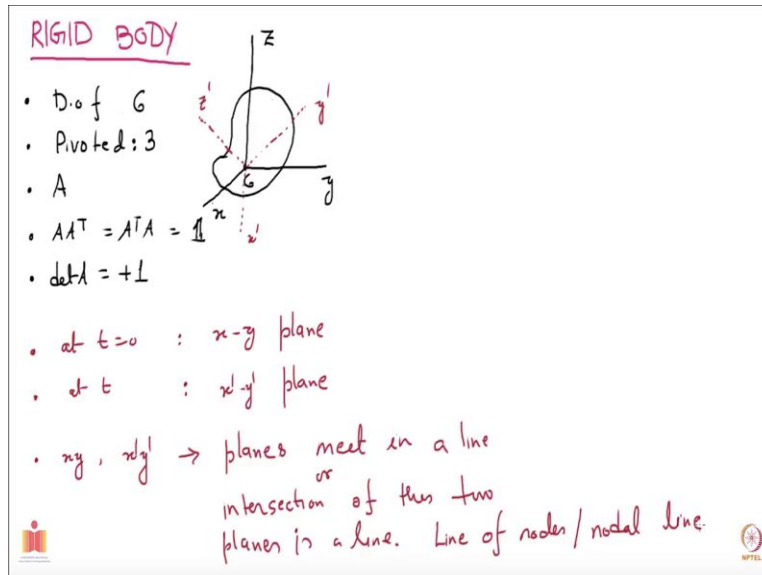 RIGID BODY
z
z'
y'
• D.of 6
• Pivoted: 3
G
y
• A
x
x'
• AAᵀ = AᵀA = 𝟙
• detA = +1
• at t=0 : x-y plane
• at t : x'-y' plane
• xy, x'y' → planes meet in a line
or
intersection of this two
planes is a line. Line of nodes / nodal line.
NPTEL